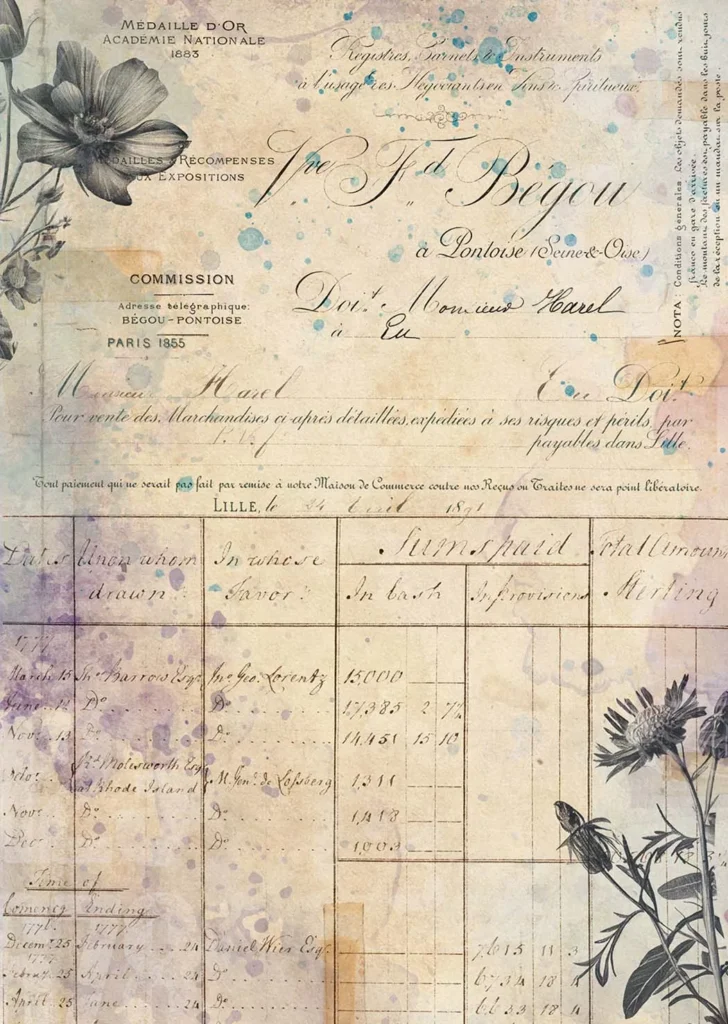 MÉDAILLE D'OR
ACADÉMIE NATIONALE
1883
Registres, Carnets & Instruments
à l'usage des Négociants en Vins & Spiritueux.
MÉDAILLES & RÉCOMPENSES
AUX EXPOSITIONS
Vve Fd Bégou
à Pontoise (Seine-&-Oise)
COMMISSION
Adresse télégraphique:
BÉGOU-PONTOISE
PARIS 1855
Doit Monsieur Harel
à Eu
NOTA : Conditions générales Les objets demandés sont rendus
franco en gare d'arrivée.
Le montant des factures est payable dans les huit jours
de la réception en un mandat sur la poste.
Monsieur Harel Eu Doit
Pour vente des Marchandises ci-après détaillées, expédiées à ses risques et périls, par
payables dans Lille.
Tout paiement qui ne serait pas fait par remise à notre Maison de Commerce contre nos Reçus ou Traites ne sera point libératoire.
LILLE, le 24 Avril 1891
Dates Upon whom drawn In whose Favor Sums paid Total Amount Sterling
In Cash In Provisions
1777
March 15 Jno Barrow Esqr Jno Geo. Lorentz 15,000
June 12 Do Do 17,385 2 7½
Novr 13 Do Do 14,451 15 10
Octor Rd Molesworth Esqr at Rhode Island M. Genl de Lossberg 1,311
Novr Do Do 1,418
Decr Do Do 1,009
Time of
Comencg Ending
1776 1777
Decem 25 February 24 Daniel Wier Esqr 7615 11 3
1777
Febry 25 April 24 Do 6734 18 4
April 25 June 24 Do 6633 18 4